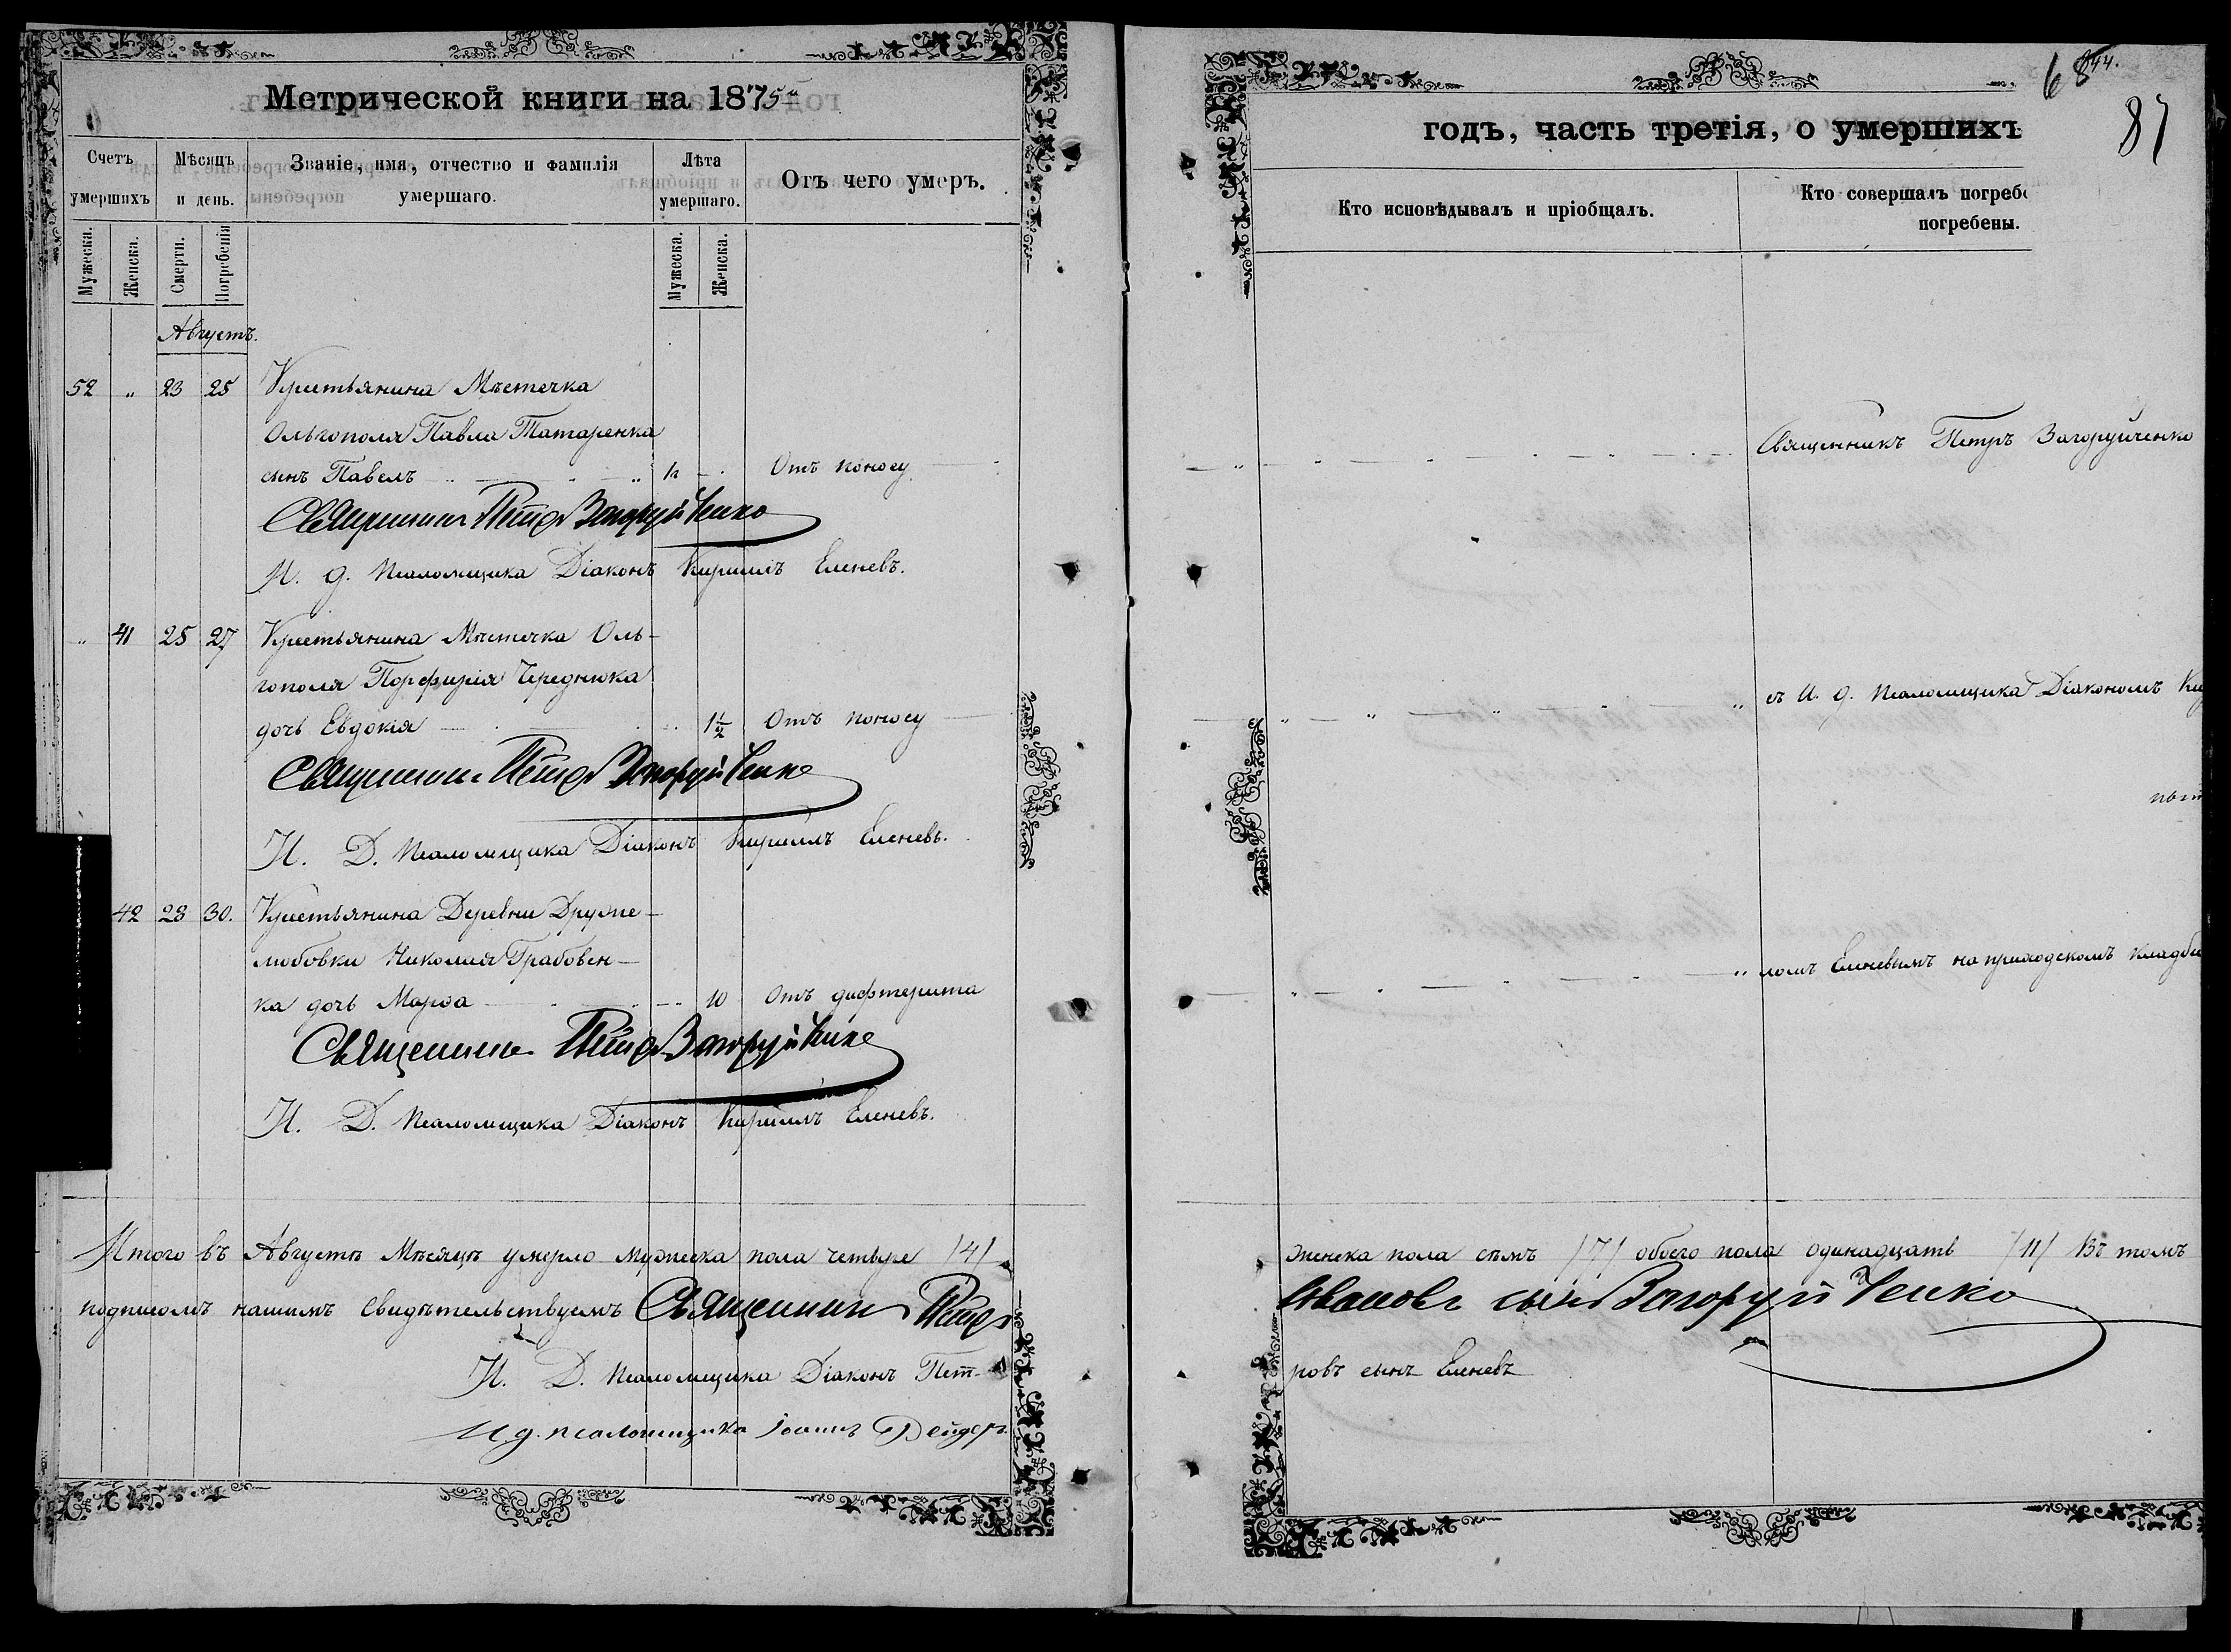 Метрической книги на 1875й
Счетъ умершихъ
Мѣсяцъ и день.
Званіе, имя, отчество и фамилія умершаго.
Лѣта умершаго.
Отъ чего умеръ.
Мужеска. Женска. Смерти. Погребенія Мужеска. Женска.
Августъ.
52 " 23 25 Крестьянина Мѣстечка
Ольгополя Павла Татаренка
сынъ Павелъ Отъ поносу
Священникъ Петръ Загоруйченко
И. д. Псаломщика Діаконъ Кириллъ Еленевъ.
" 41 25 27 Крестьянина Мѣстечка Оль-
гополя Порфирія Чередника
дочь Евдокія 1 1/2 Отъ поносу
Священникъ Петръ Загоруйченко
И. Д. Псаломщика Діаконъ Кириллъ Еленевъ.
42 28 30. Крестьянина Деревни Друже-
любовки Николая Грабовен-
ка дочь Марѳа 10 Отъ дифтерита
Священникъ Петръ Загоруйченко
И. Д. Псаломщика Діаконъ Кириллъ Еленевъ.
Итого въ Августѣ Мѣсяцѣ умерло мужеска пола четыре /4/
подписомъ нашимъ свидѣтельствуемъ Священникъ Петръ
И. Д. Псаломщика Діаконъ Пет-
И. д. псаломщика Іоаннъ
68 44.
87
годъ, часть третія, о умершихъ
Кто исповѣдывалъ и пріобщалъ.
Кто совершалъ погреб
погребены.
Священникъ Петръ Загоруйченко
съ И. д. Псаломщика Діакономъ Ки
ломъ Еленевымъ на приходскомъ кладби
женска пола семь /7/ обоего пола одинадцать /11/ Въ томъ
Ивановъ сынъ Загоруйченко
ровъ сынъ Еленевъ